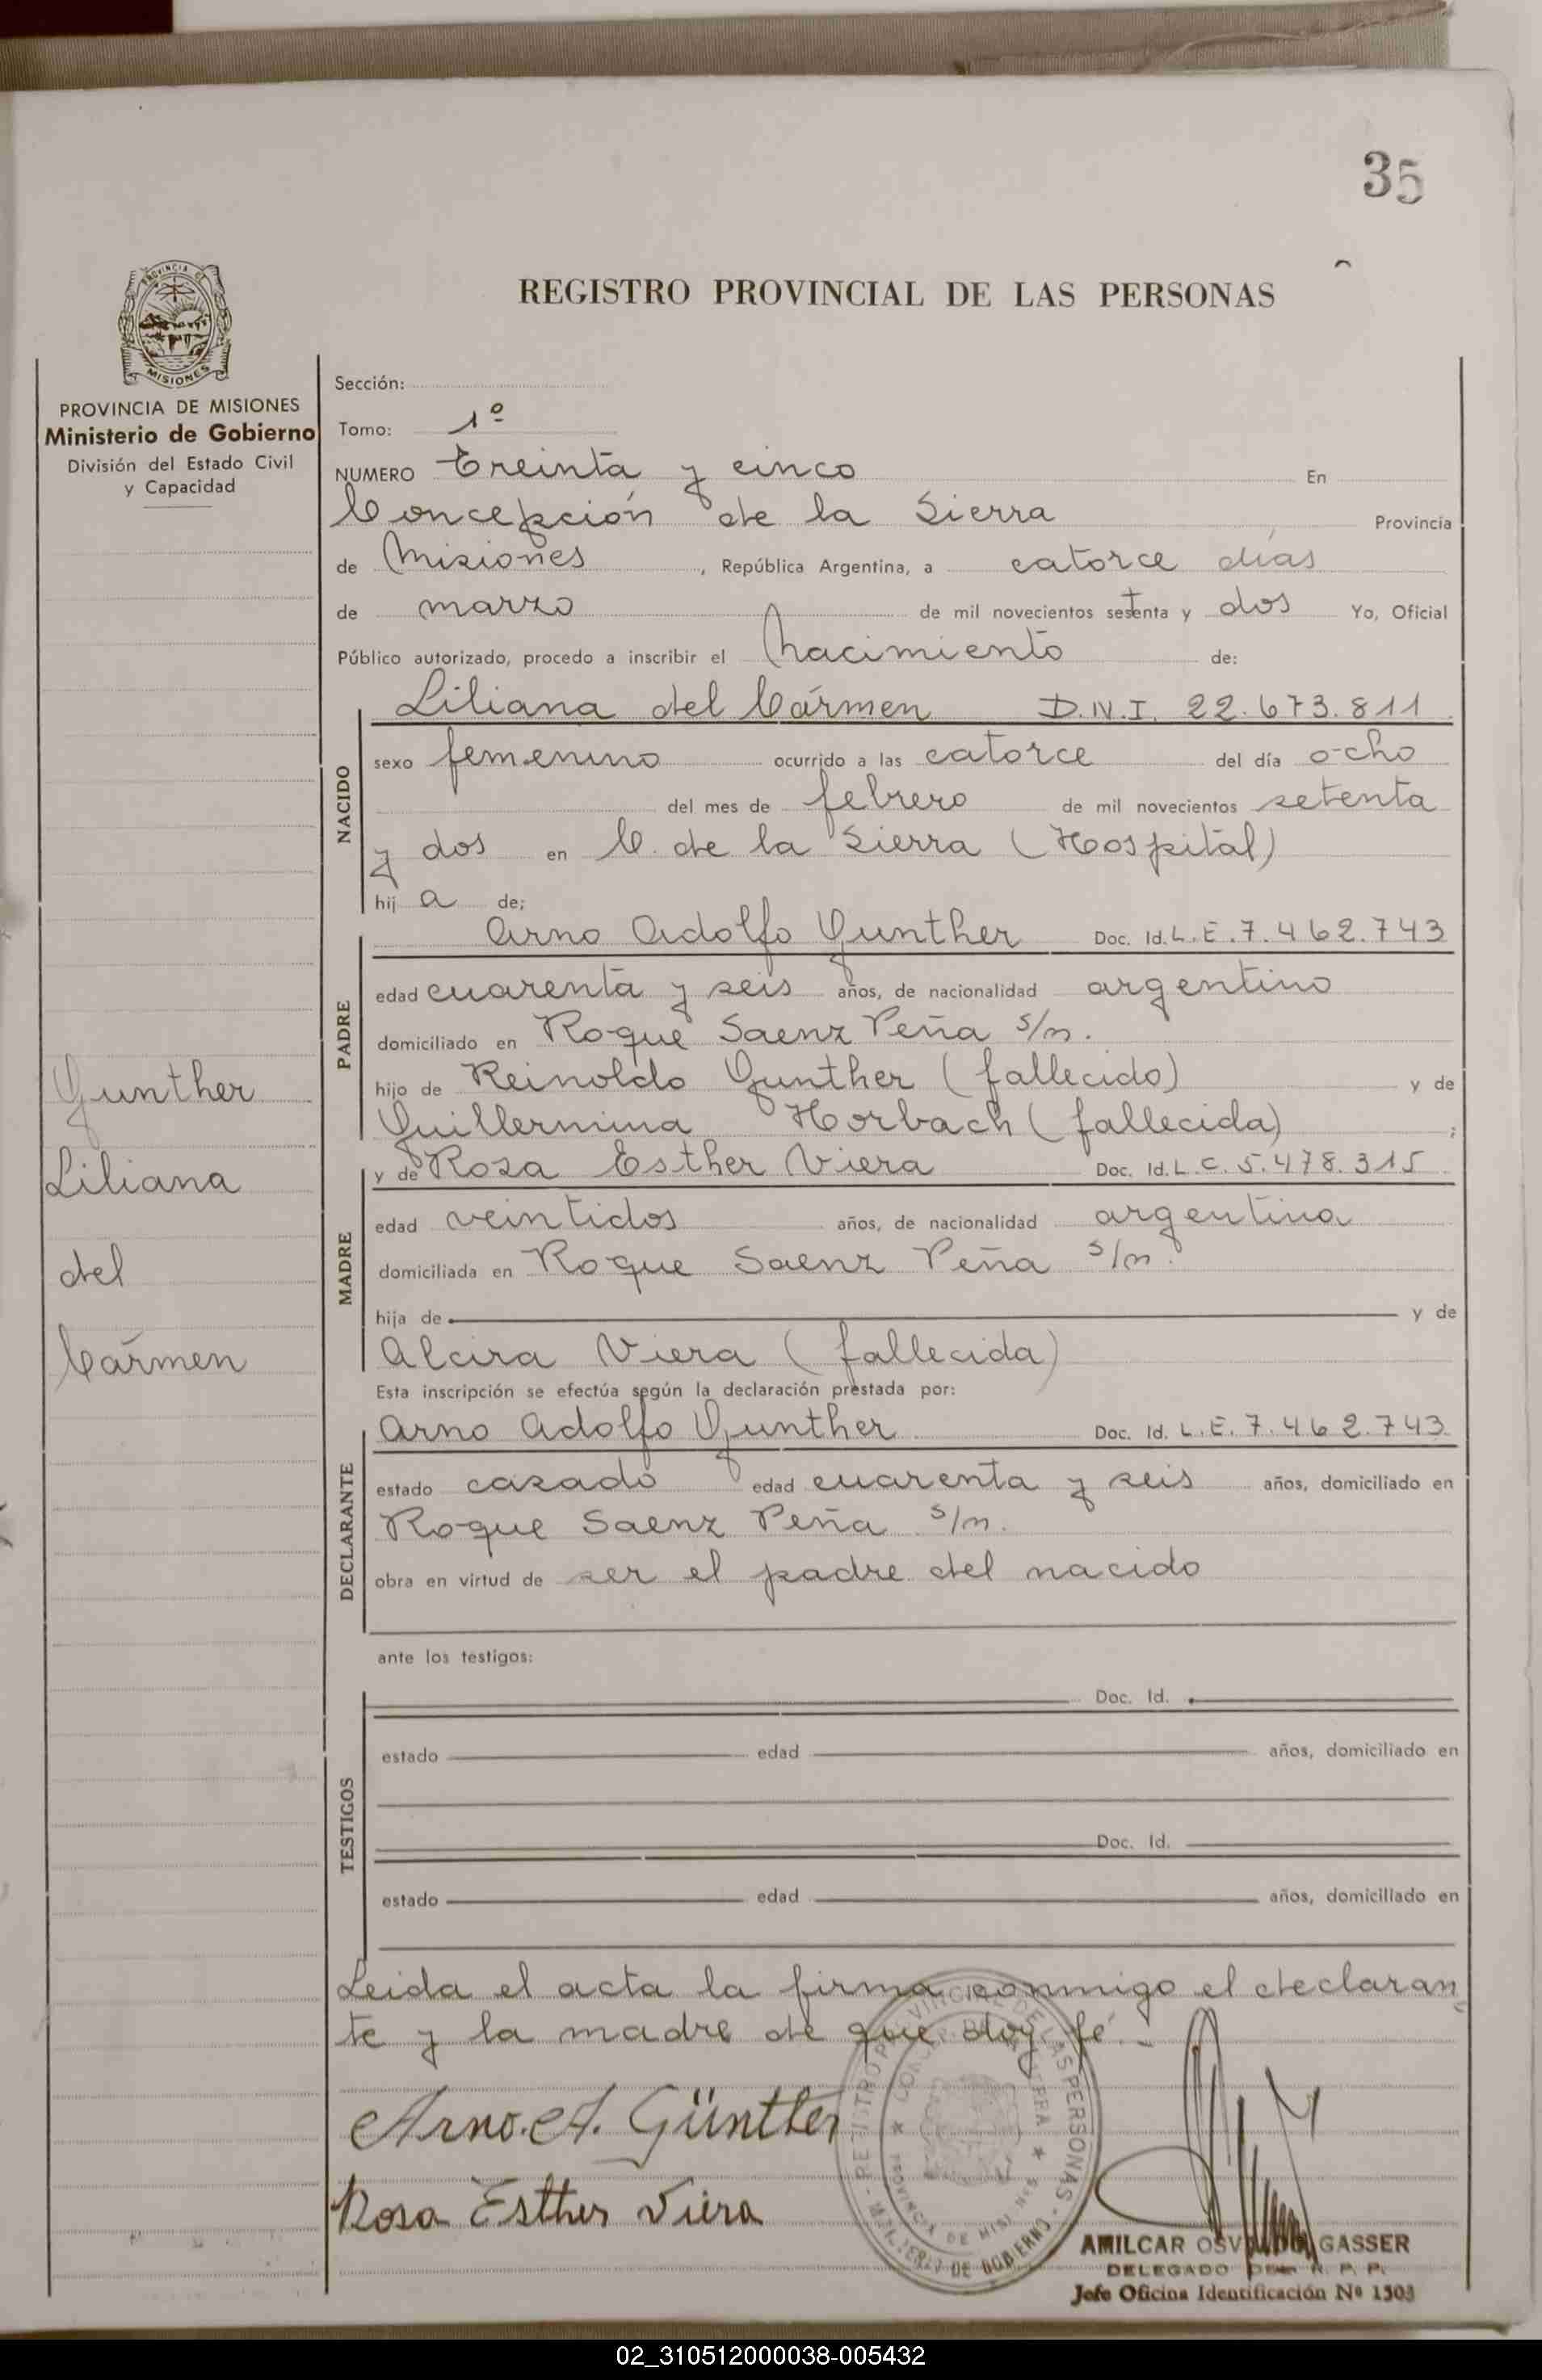 35
REGISTRO PROVINCIAL DE LAS PERSONAS
PROVINCIA DE
MISIONES
PROVINCIA DE MISIONES
Ministerio de Gobierno
División del Estado Civil
y Capacidad
Sección:
Tomo: 1º
NUMERO Treinta y cinco En
Concepción de la Sierra Provincia
de Misiones, República Argentina, a catorce días
de marzo de mil novecientos setenta y dos Yo, Oficial
Público autorizado, procedo a inscribir el Nacimiento de:
Liliana del Cármen D.N.I. 22.673.811
NACIDO
sexo femenino ocurrido a las catorce del día ocho
del mes de febrero de mil novecientos setenta
y dos en C. de la Sierra (Hospital)
hij a de;
Arno Adolfo Gunther Doc. Id. L.E. 7.462.743
PADRE
edad cuarenta y seis años, de nacionalidad argentino
domiciliado en Roque Saenz Peña s/n.
hijo de Reinoldo Gunther (fallecido) y de
Guillermina Horbach (fallecida) ;
y de Rosa Esther Viera Doc. Id. L.C. 5.478.315
MADRE
edad veintidos años, de nacionalidad argentina
domiciliada en Roque Saenz Peña s/n.
hija de y de
Alcira Viera (fallecida)
Esta inscripción se efectúa según la declaración prestada por:
Arno Adolfo Gunther Doc. Id. L.E. 7.462.743
DECLARANTE
estado casado edad cuarenta y seis años, domiciliado en
Roque Saenz Peña s/n.
obra en virtud de ser el padre del nacido
ante los testigos:
TESTIGOS
Doc. Id.
estado edad años, domiciliado en
Doc. Id.
estado edad años, domiciliado en
Leida el acta la firma conmigo el declaran
te y la madre de que doy fé.-
Gunther
Liliana
del
Cármen
Arno. A. Günther
Rosa Esther Viera
REGISTRO PROVINCIAL DE LAS PERSONAS - MINISTERIO DE GOBIERNO
PROVINCIA DE MISIONES
AMILCAR GASSER
DELEGADO R. P. P.
Jefe Oficina Identificación Nº 1303
02_310512000038-005432